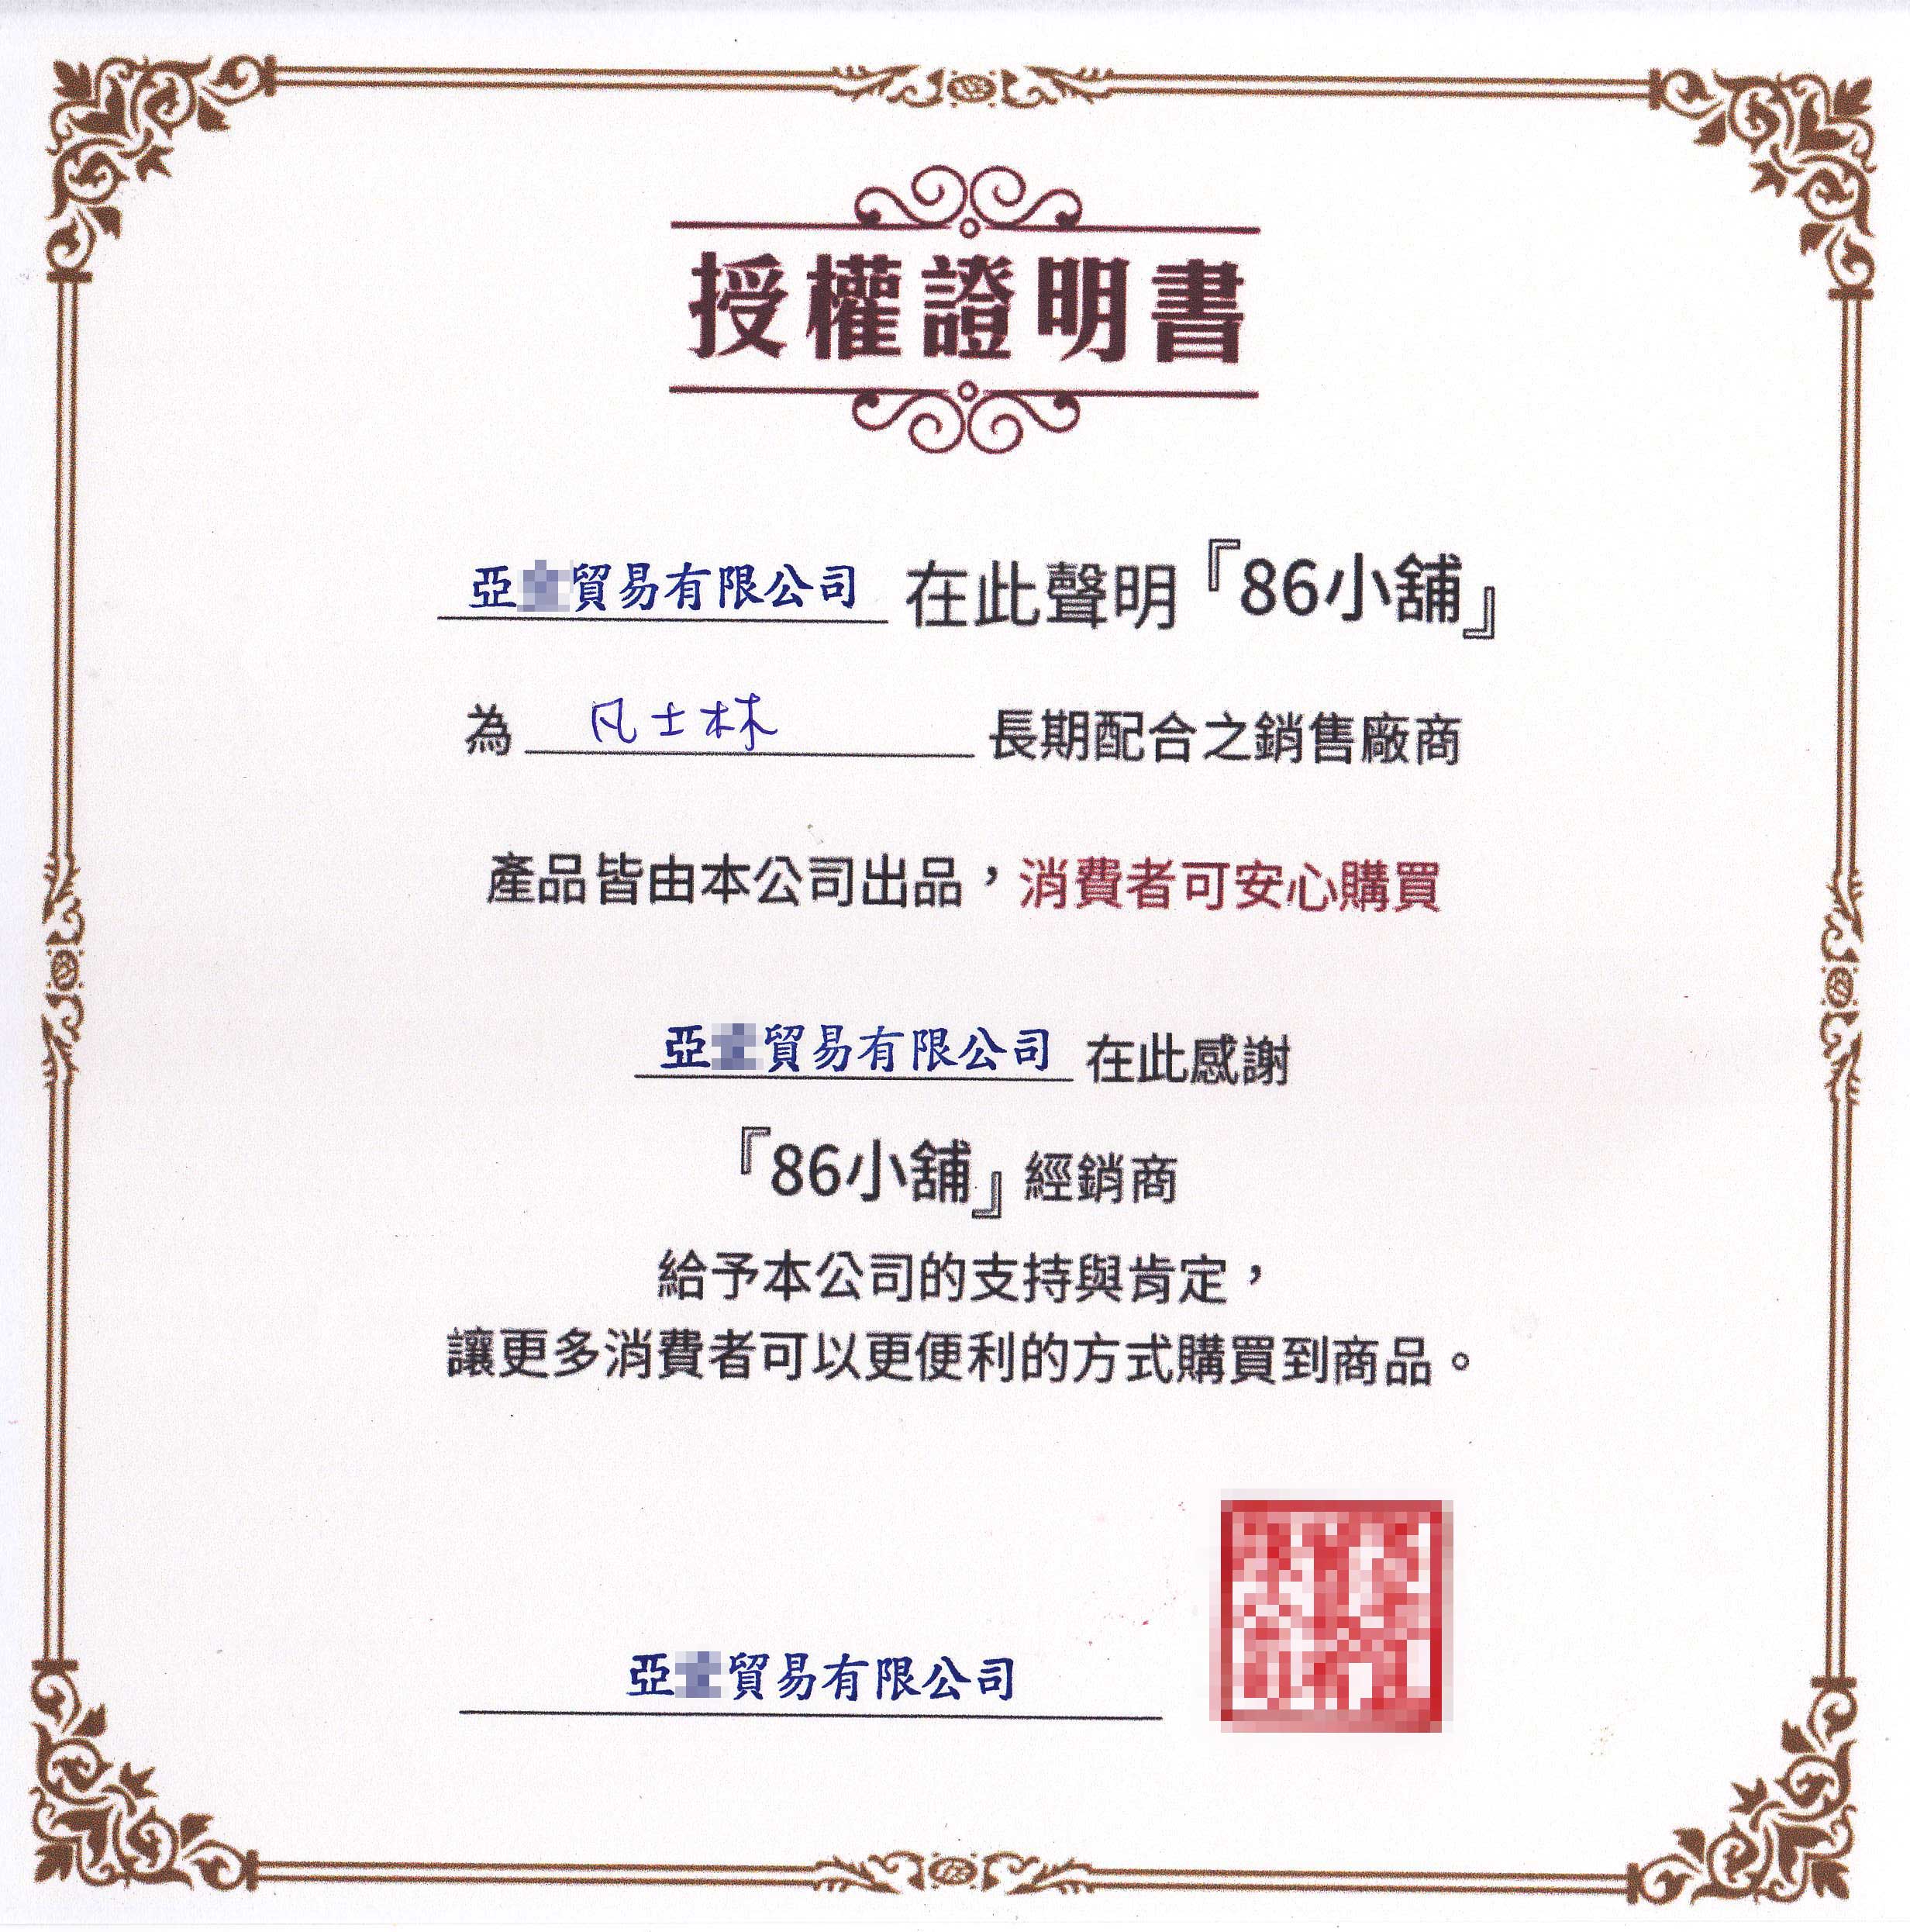 授權證明書
亞 貿易有限公司 在此聲明『86小舖』
為 凡士林 長期配合之銷售廠商
產品皆由本公司出品，消費者可安心購買
亞 貿易有限公司 在此感謝
『86小舖』經銷商
給予本公司的支持與肯定，
讓更多消費者可以更便利的方式購買到商品。
亞 貿易有限公司